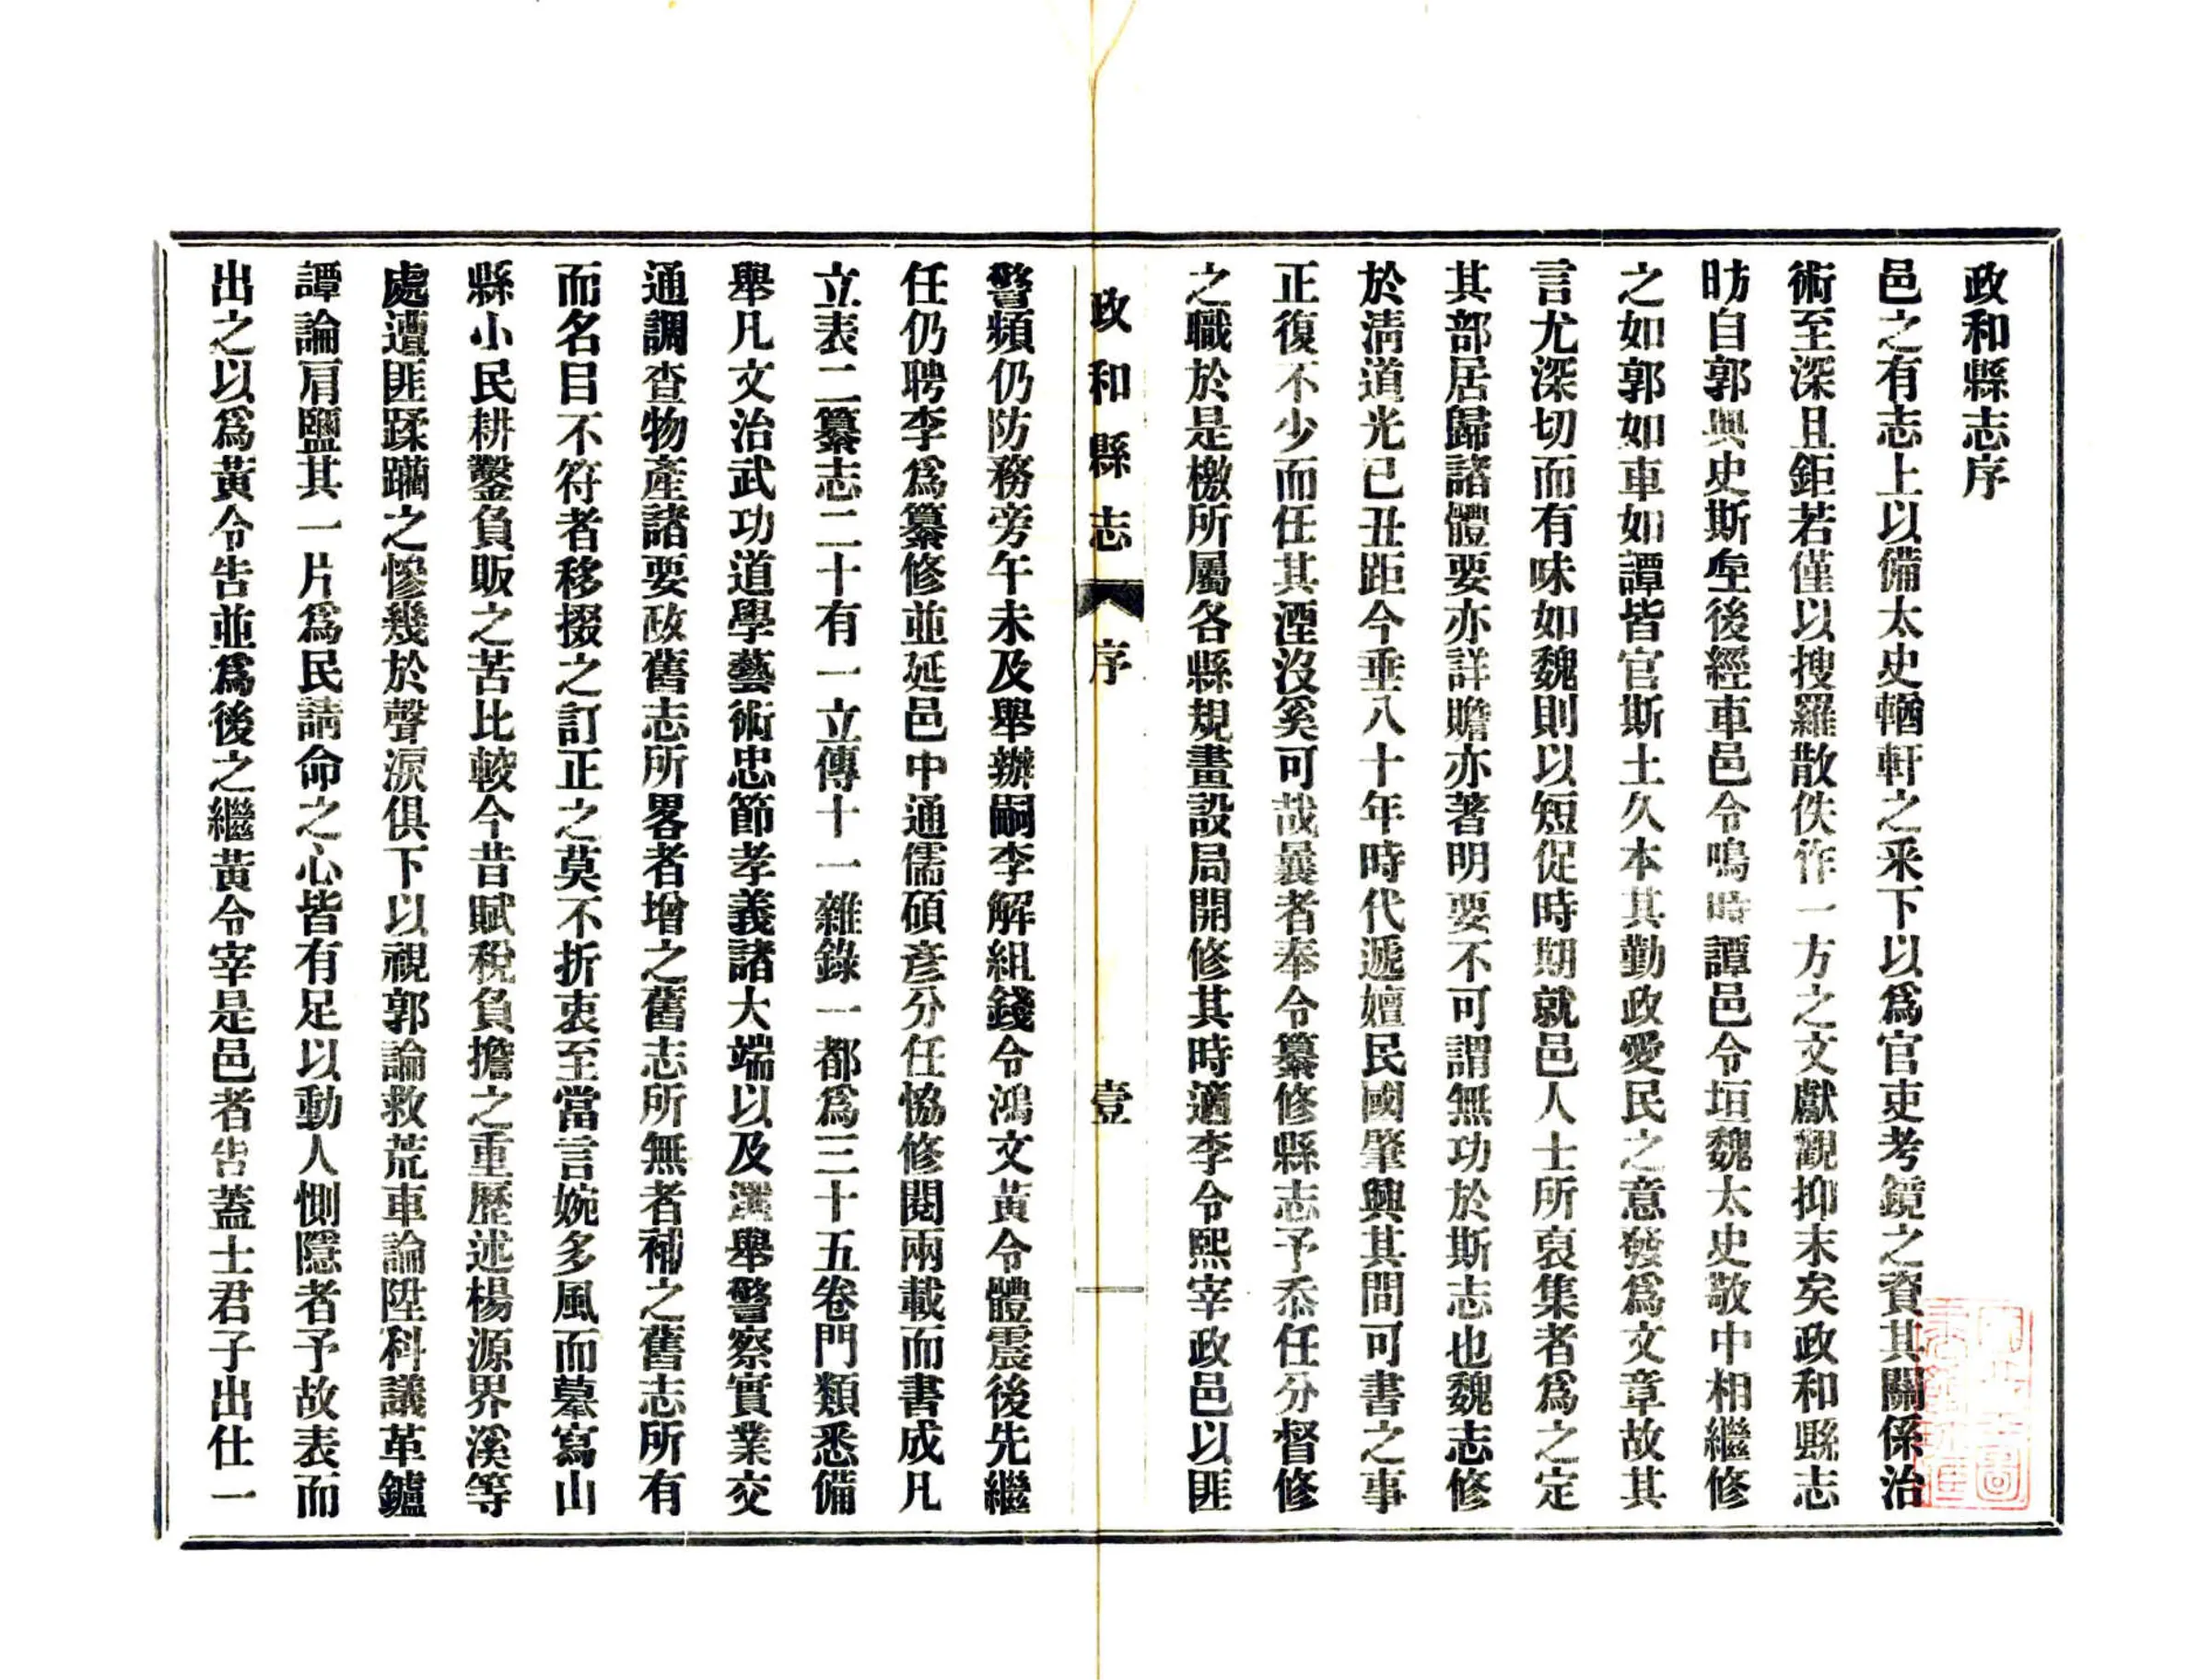 政和縣志序
邑之有志上以備太史輶軒之釆下以爲官吏考鏡之資其關係治
術至深且鉅若僅以搜羅散佚作一方之文獻觀抑末矣政和縣志
昉自郭興史斯垕後經車邑令鳴時譚邑令垣魏太史敬中相繼修
之如郭如車如譚皆官斯土久本其勤政愛民之意發爲文章故其
言尤深切而有味如魏則以短促時期就邑人士所裒集者爲之定
其部居歸諸體要亦詳贍亦著明要不可謂無功於斯志也魏志修
於淸道光已丑距今垂八十年時代遞嬗民國肇興其間可書之事
正復不少而任其湮沒奚可哉曩者奉令纂修縣志予忝任分督修
之職於是檄所屬各縣規畫設局開修其時適李令熙宰政邑以匪
政和縣志 序 壹
警頻仍防務旁午未及舉辦嗣李解組錢令鴻文黃令體震後先繼
任仍聘李爲纂修並延邑中通儒碩彥分任恊修閱兩載而書成凡
立表二纂志二十有一立傳十一雜錄一都爲三十五卷門類悉備
舉凡文治武功道學藝術忠節孝義諸大端以及選舉警察實業交
通調查物產諸要政舊志所畧者增之舊志所無者補之舊志所有
而名目不符者移掇之訂正之莫不折衷至當言婉多風而摹寫山
縣小民耕鑿負販之苦比較今昔賦稅負擔之重歷述楊源界溪等
處遭匪蹂躪之慘幾於聲淚俱下以視郭論救荒車論陞科議革鑪
譚論肩鹽其一片爲民請命之心皆有足以動人惻隱者予故表而
出之以爲黃令告並爲後之繼黃令宰是邑者告蓋士君子出仕一